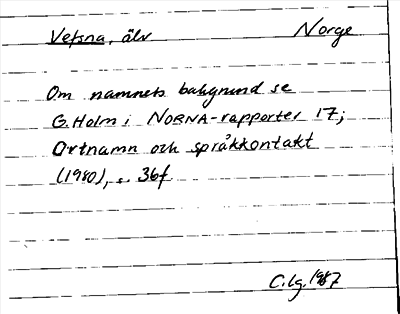 Vefsna, älv Norge
Om namnets bakgrund se
G. Holm i NORNA-rapporter 17;
Ortnamn och språkkontakt
(1980), s. 36f.
C.lg. 1987